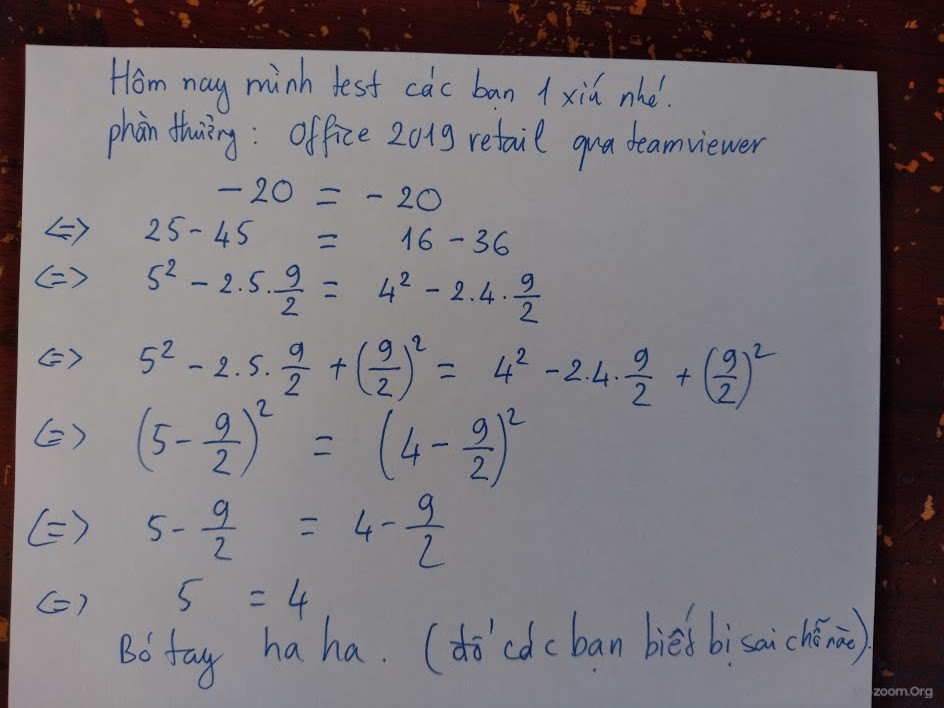 Hôm nay mình test các bạn 1 xíu nhé.
phần thưởng: Office 2019 retail qua teamviewer
-20 = -20
<=> 25 - 45 = 16 - 36
<=> 5² - 2.5.9/2 = 4² - 2.4.9/2
<=> 5² - 2.5.9/2 + (9/2)² = 4² - 2.4.9/2 + (9/2)²
<=> (5 - 9/2)² = (4 - 9/2)²
<=> 5 - 9/2 = 4 - 9/2
<=> 5 = 4
Bó tay ha ha. (đố các bạn biết bị sai chỗ nào).
zoom.Org